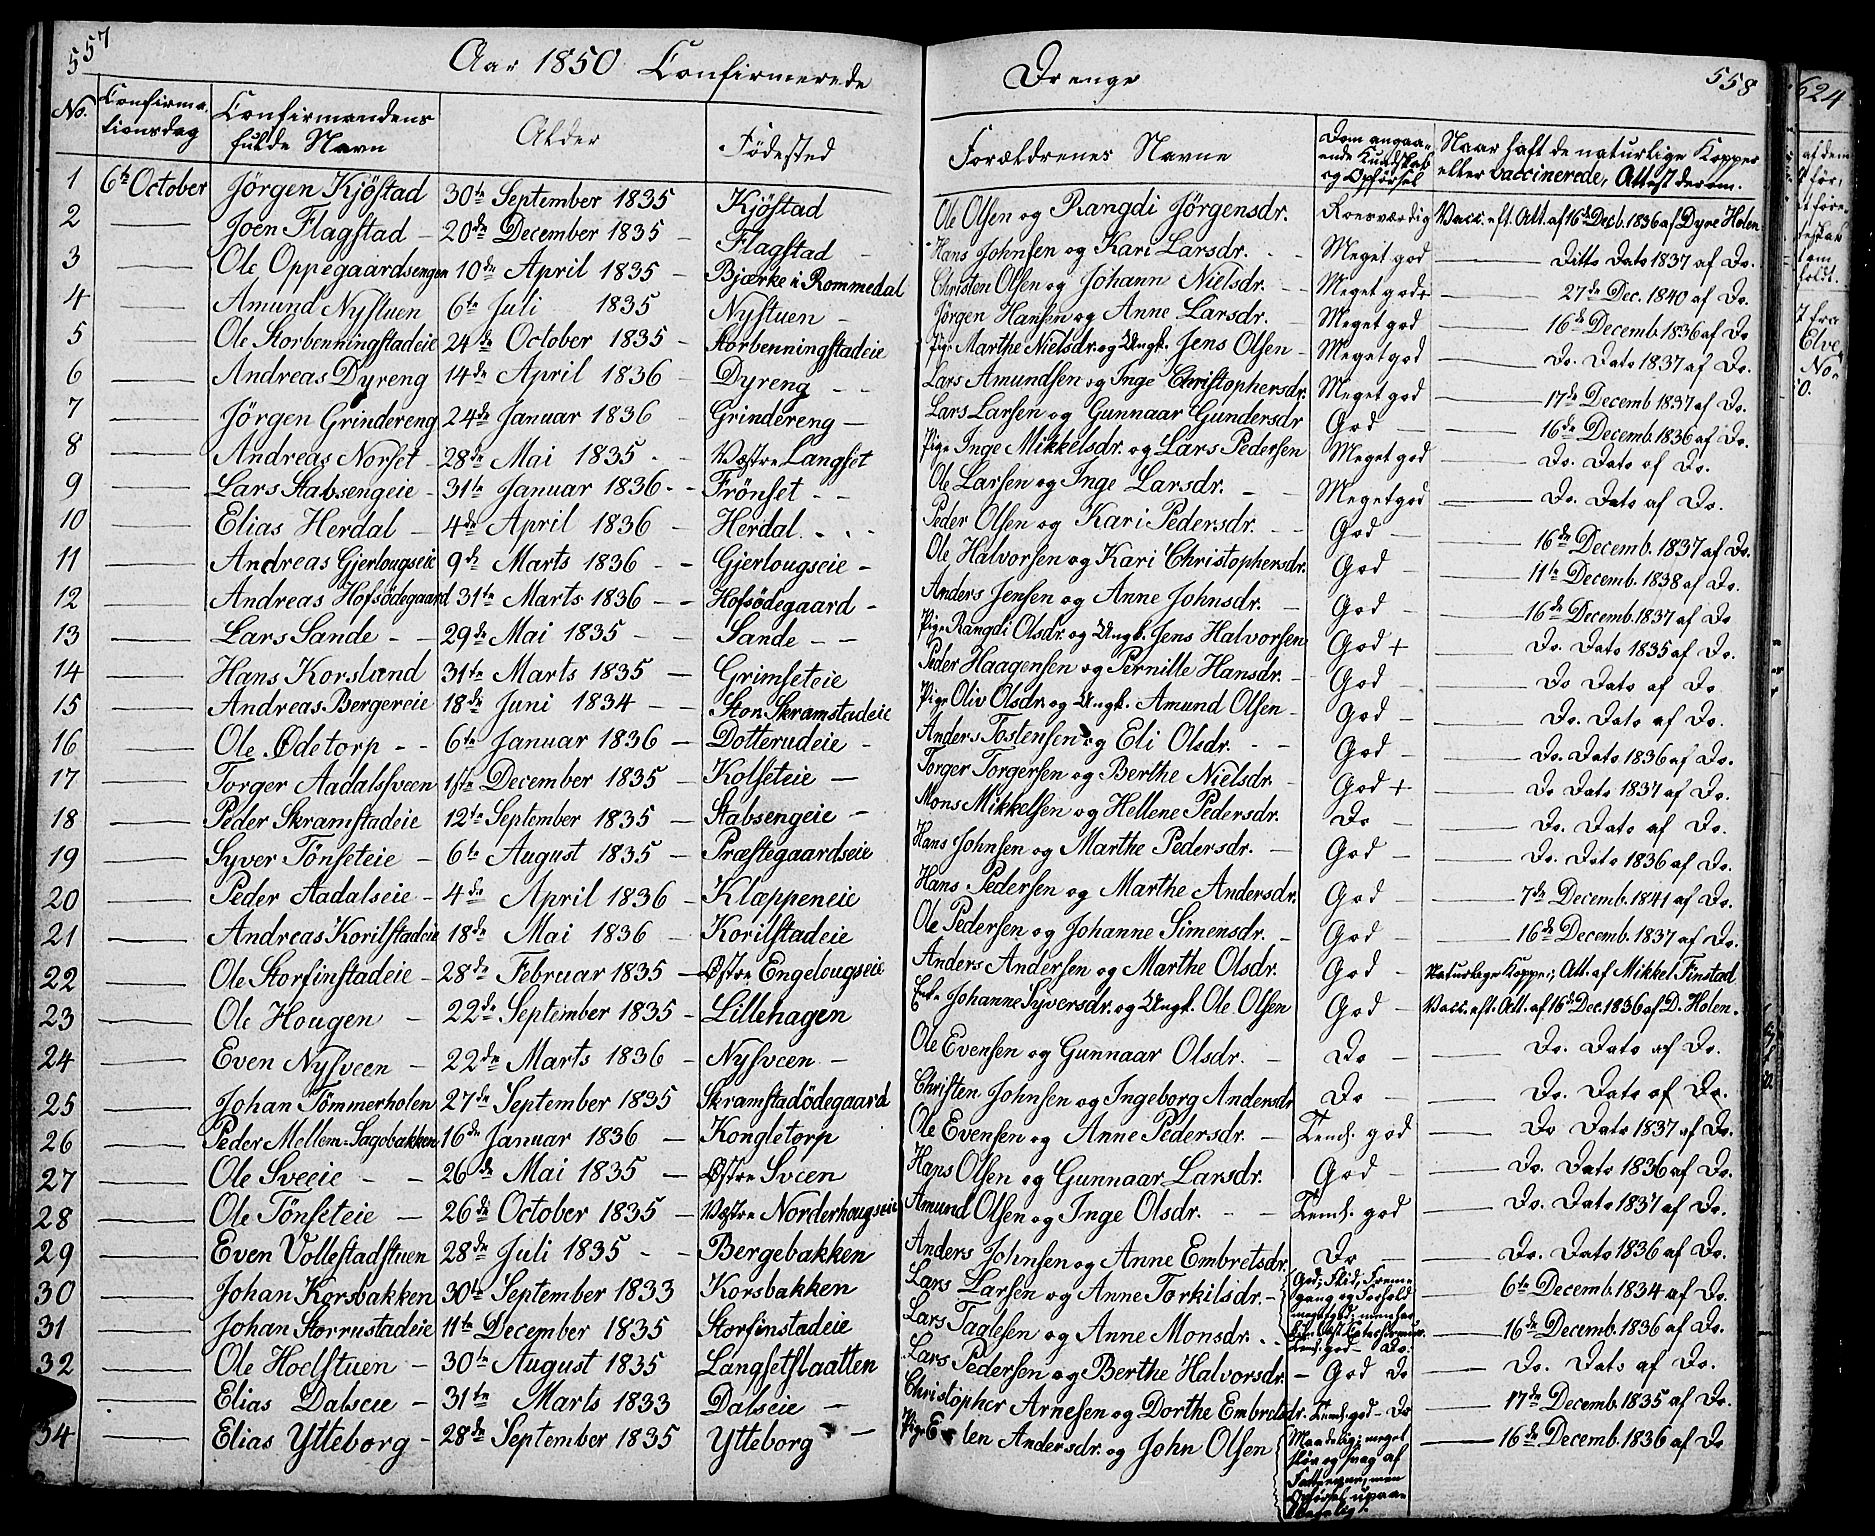 557
Aar 1850 Confirmerede
Drenge
558
624
No. Confirmationsdag Confirmandens fulde Navn Alder Fødested Forældrenes Navne Dom angaaende Kundskab og Opførsel Naar haft de naturlige Kopper eller vaccinerede, Attest derom.
1 6te October Jörgen Kjöstad 30te September 1835 Kjöstad Ole Olsen og Rangdi Jörgensdr. Roesværdig Vacc. eft. Att. af 16de Decb. 1836 af Dyre Holen
2 Joen Flagstad 20de December 1835 Flagstad Hans Johnsen og Kari Larsdr. Meget god Ditto Dato 1837 af Do.
3 Ole Oppegaardsengen 10de April 1835 Bjærke i Rommedal Christen Olsen og Johann Nielsdr. Meget god+ 27de Dec. 1840 af Do.
4 Amund Nystuen 6te Juli 1835 Nystuen Jörgen Hansen og Anne Larsdr. Meget god 16de Decemb. 1836 af Do
5 Ole Storbenningstadeie 24de October 1835 Storbenningstadeie Pige Marthe Nielsdr. og Ungk. Jens Olsen Meget god Do. Dato 1837 af Do.
6 Andreas Dyreng 14de April 1836 Dyreng Lars Amundsen og Inge Christophersdr. Meget god 17de Decemb 1837 af Do.
7 Jörgen Grindereng 24de Januar 1836 Grindereng Lars Larsen og Gunnaar Gundersdr God 16de Decemb. 1836 af Do.
8 Andreas Norset 28de Mai 1835 Vestre Langset Pige Inge Mikkelsdr. og Lars Pedersen Meget god Do. Dato af Do.
9 Lars Stabsengeie 31te Januar 1836 Frönset Ole Larsen og Inge Larsdr. Meget god Do. Dato af Do.
10 Elias Herdal 4de April 1836 Herdal Peder Olsen og Kari Pedersdr. God 16de Decemb. 1837 af Do.
11 Andreas Gjerlougseie 9de Marts 1836 Gjerlougseie Ole Halvorsen og Kari Christophersdr. God 11te Decemb. 1838 af Do.
12 Andreas Hofsödegaard 31te Marts 1836 Hofsödegaard Anders Jensen og Anne Johnsdr. God 16de Decemb. 1837 af Do
13 Lars Sande 29de Mai 1835 Sande Pige Rangdi Olsdr. og Ungk. Jens Halvorsen God + Do. Dato 1835 af Do.
14 Hans Korslund 31te Marts 1835 Grimseteie Peder Haagensen og Pernille Hansdr. God Do Dato af Do
15 Andreas Bergereie 18de Juni 1834 Stor Skramstadeie Pige Oliv Olsdr. og Ungk. Amund Olsen God Do. Dato af Do.
16 Ole Ødetorp 6te Januar 1836 Dotterudeie Anders Tostensen og Eli Olsdr. God Do. Dato 1836 af Do.
17 Torger Aadalssveen 1ste December 1835 Kolseteie Torger Torgersen og Berthe Nielsdr. God + Do Dato 1837 af Do.
18 Peder Skramstadeie 12te September 1835 Stabsengeie Mons Mikkelsen og Hellene Pedersdr. Do Do. Dato af Do.
19 Syver Tönseteie 6te August 1835 Præstegaardseie Hans Johnsen og Marthe Pedersdr. God Do. Dato 1836 af Do.
20 Peder Aadalseie 4de April 1836 Klæppeneie Hans Pedersen og Marthe Andersdr. God 7de Decemb. 1841 af Do.
21 Andreas Korilstadeie 18de Mai 1836 Korilstadeie Ole Pedersen og Johanne Simensdr. God 16de Decemb. 1837 af Do.
22 Ole Storfinstadeie 28de Februar 1835 Østre Engelougseie Anders Andersen og Marthe Olsdr. God Naturlige Kopper, Att. af Mikkel Finstad
23 Ole Hougen 22de September 1835 Lillehagen Enke Johanne Syversdr. og Ungk. Ole Olsen God Vacc. eft. Att. af 16de Dec. 1836 af D. Holen.
24 Even Nysveen 22de Marts 1836 Nysveen Ole Evensen og Gunnaar Olsdr. Do Do. Dato af Do.
25 Johan Tömmerholen 27de September 1835 Skramstadödegaard Christen Johnsen og Ingeborg Andersdr Do Do. Dato af Do.
26 Peder Mellem-Sagobakken 16de Januar 1836 Kongletorp Ole Evensen og Anne Pedersdr. Temh. god Do Dato 1837 af Do.
27 Ole Sveeie 26de Mai 1835 Østre Sveen Hans Olsen og Gunnaar Larsdr. God Do. Dato 1836 af Do.
28 Ole Tönseteie 26de October 1835 Vestre Norderhougseie Amund Olsen og Inge Olsdr. Temh. god Do. Dato 1837 af Do.
29 Even Vollestadstuen 28de Juli 1835 Bergebakken Anders Johnsen og Anne Embretsdr. Do Do. Dato 1836 af Do.
30 Johan Korsbakken 30te September 1833 Korsbakken Lars Larsen og Anne Torkilsdr. God; Flid, Fremgang og Forhold 6te Decemb. 1834 af Do.
31 Johan Storrustadeie 11te December 1835 Storfinstadeie Lars Taglesen og Anne Monsdr. Temh. god Do. 16de Decemb. 1836 af Do.
32 Ole Hoelstuen 30te August 1835 Langsetslaatten Lars Pedersen og Berthe Halvorsdr. God Do Do. Dato af Do.
Elias Dalseie 31te Marts 1833 Dalseie Christopher Arnesen og Dorthe Embretsdr. Temh. god Do 17de Decemb. 1835 af Do.
34 Elias Ytteborg 28de September 1835 Ytteborg Pige Andersdr. og John Olsen Maadelig; meget sløv og svag af Fatteevne, men Opførsel upaaklagelig. 16de Decemb. 1836 af Do